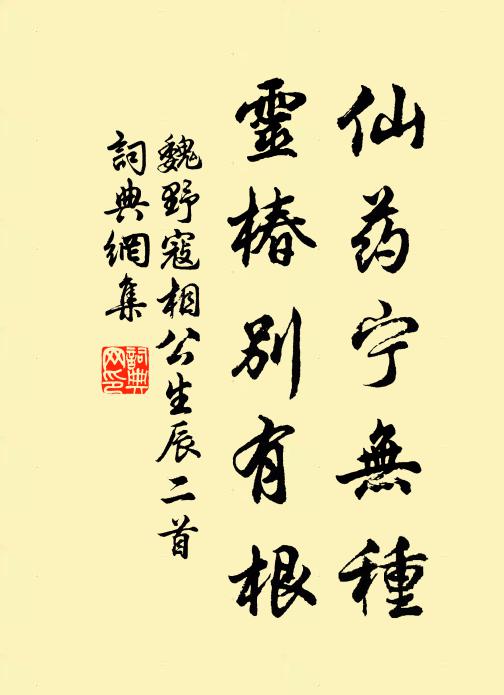 仙药宁無種
靈椿别有根
魏野寇相公生辰二首
詞典網集
詞典网印